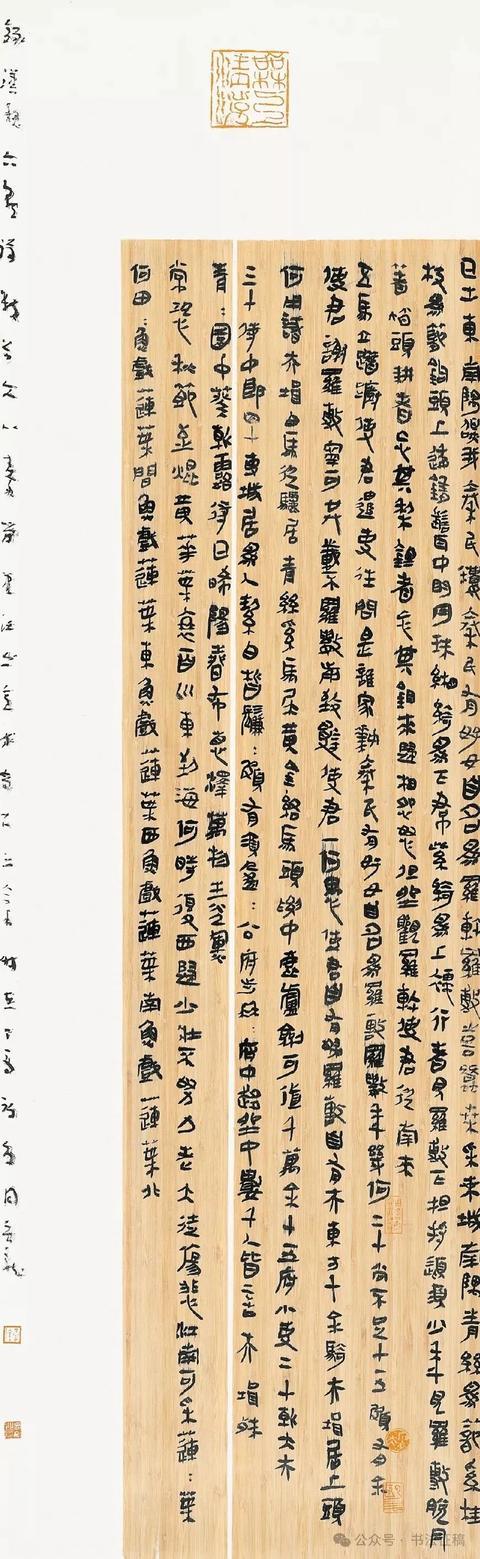 日出東南隅照我秦氏樓秦氏有好女自名為羅敷羅敷喜蠶桑采桑城南隅青絲為籠系桂
枝為籠鉤頭上倭墮髻耳中明月珠緗綺為下帬紫綺為上襦行者見羅敷下担捋髭須少年見羅敷脫
著帩頭耕者忘其犁鋤者忘其鋤來歸相怨怒但坐觀羅敷使君從南來
五馬立踟躕使君遣吏往問是誰家姝秦氏有好女自名為羅敷羅敷年幾何二十尚不足十五頗有余
使君謝羅敷寧可共載不羅敷前致辭使君一何愚使君自有婦羅敷自有夫東方千余騎夫婿居上頭
何用識夫婿白馬從驪居青絲系馬尾黃金絡馬頭腰中鹿盧劍可值千萬余十五府小吏二十朝大夫
三十侍中郎四十專城居為人潔白皙鬑:頗有須盈:公府步冉:府中趨坐中數千人皆言夫婿殊
青:園中葵朝露待日晞陽春布德澤萬物生光輝
常恐秋節至焜黃華葉衰百川東到海何時復西歸少壯不努力老大徒傷悲江南可采蓮:葉
何田:魚戲蓮葉間魚戲蓮葉東魚戲蓮葉西魚戲蓮葉南魚戲蓮葉北
錄漢魏六朝詩
公众号·书法征稿